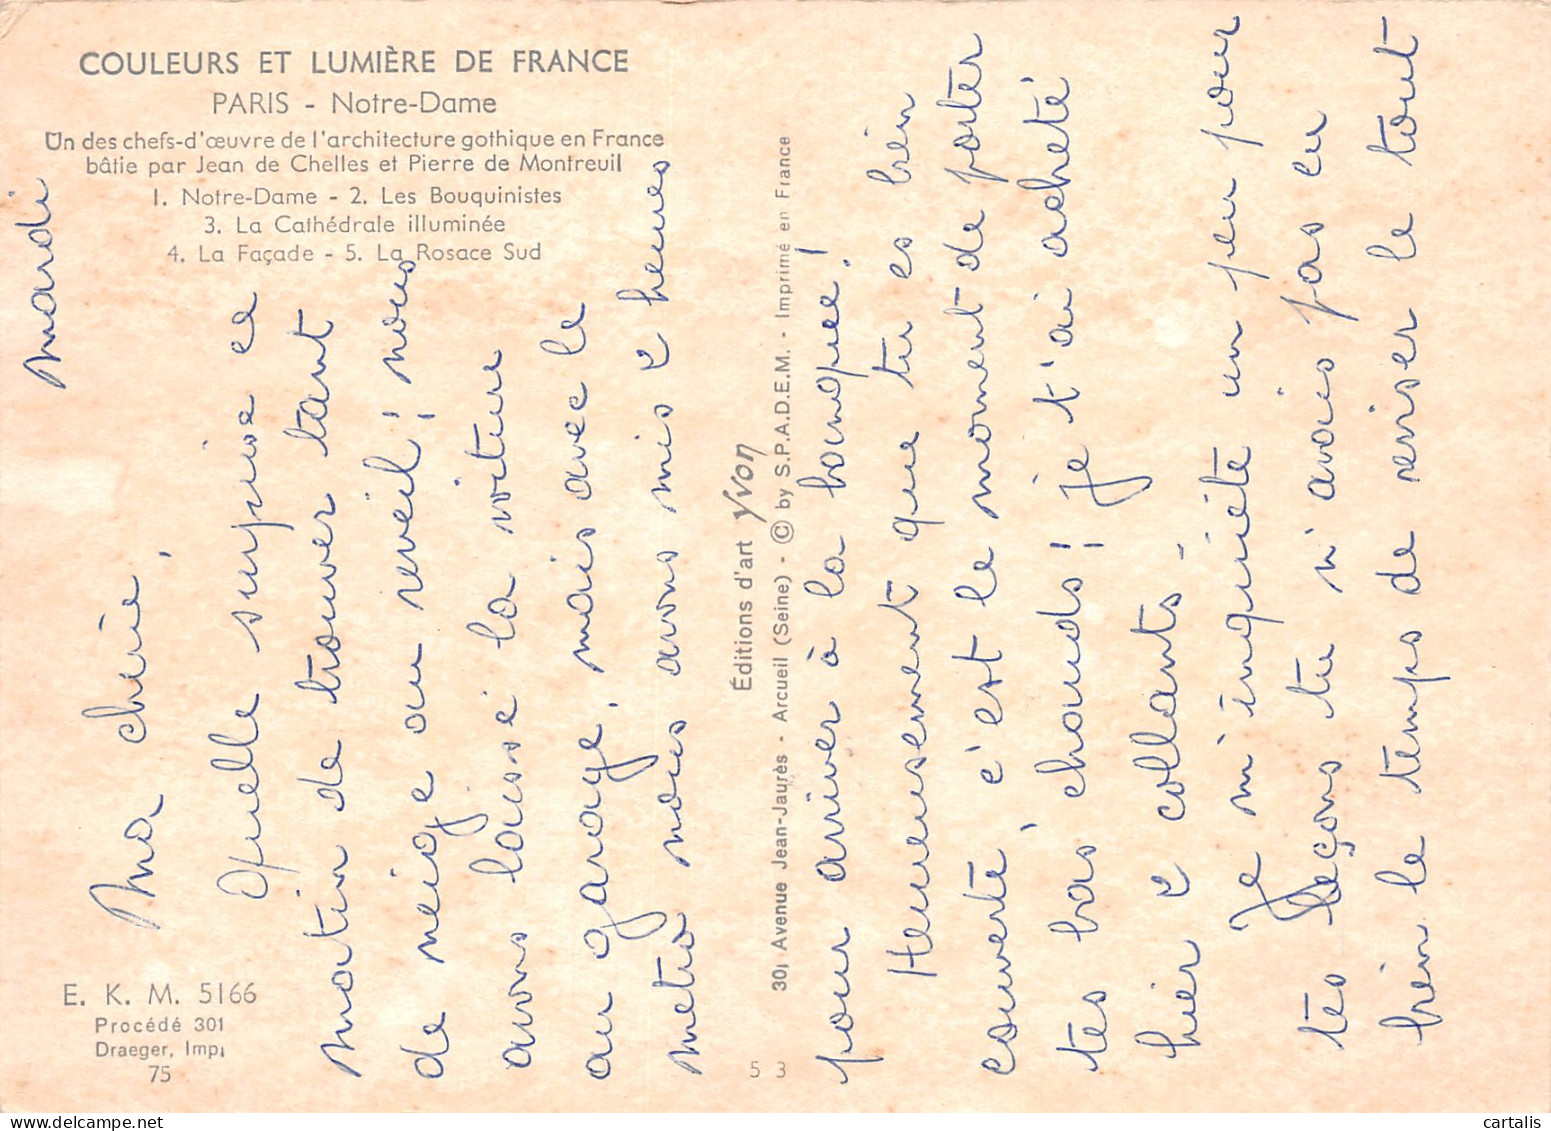 COULEURS ET LUMIÈRE DE FRANCE
PARIS - Notre-Dame
Un des chefs-d'œuvre de l'architecture gothique en France
bâtie par Jean de Chelles et Pierre de Montreuil
1. Notre-Dame - 2. Les Bouquinistes
3. La Cathédrale illuminée
4. La Façade - 5. La Rosace Sud
E. K. M. 5166
Procédé 301
Draeger, Imp.
75
mardi
Ma chérie,
Quelle surprise ce
matin de trouver tant
de neige au réveil! nous
avons laissé la voiture
au garage, mais avec le
métro nous avons mis 2 heures
Éditions d'art yvon
30, Avenue Jean-Jaurès - Arcueil (Seine) - © by S.P.A.D.E.M. - Imprimé en France
5 3
pour arriver à la banque!
Heureusement que tu es bien
couverte c'est le moment de porter
tes bas chauds! je t'ai acheté
hier 2 collants -
Je m'inquiète un peu pour
tes leçons tu n'avais pas eu
bien le temps de reviser le tout
cartalis